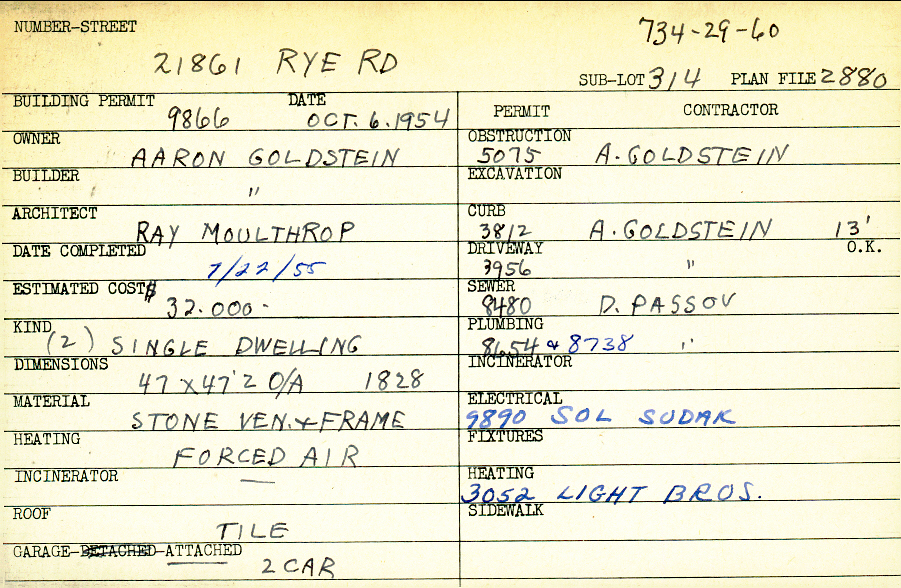 NUMBER-STREET
734-29-60
21861 RYE RD
SUB-LOT 314 PLAN FILE 2880
BUILDING PERMIT DATE
9866 OCT. 6. 1954
OWNER
AARON GOLDSTEIN
BUILDER
"
ARCHITECT
RAY MOULTHROP
DATE COMPLETED
7/22/55
ESTIMATED COST $
32.000-
KIND
(2) SINGLE DWELLING
DIMENSIONS
47 x 47'2 O/A 1828
MATERIAL
STONE VEN. + FRAME
HEATING
FORCED AIR
INCINERATOR
—
ROOF
TILE
GARAGE-DETACHED-ATTACHED
2 CAR
PERMIT CONTRACTOR
OBSTRUCTION
5075 A. GOLDSTEIN
EXCAVATION
CURB
3812 A. GOLDSTEIN 13'
DRIVEWAY O.K.
3956 "
SEWER
8480 D. PASSOV
PLUMBING
8654 & 8738 "
INCINERATOR
ELECTRICAL
9890 SOL SUDAK
FIXTURES
HEATING
3052 LIGHT BROS.
SIDEWALK